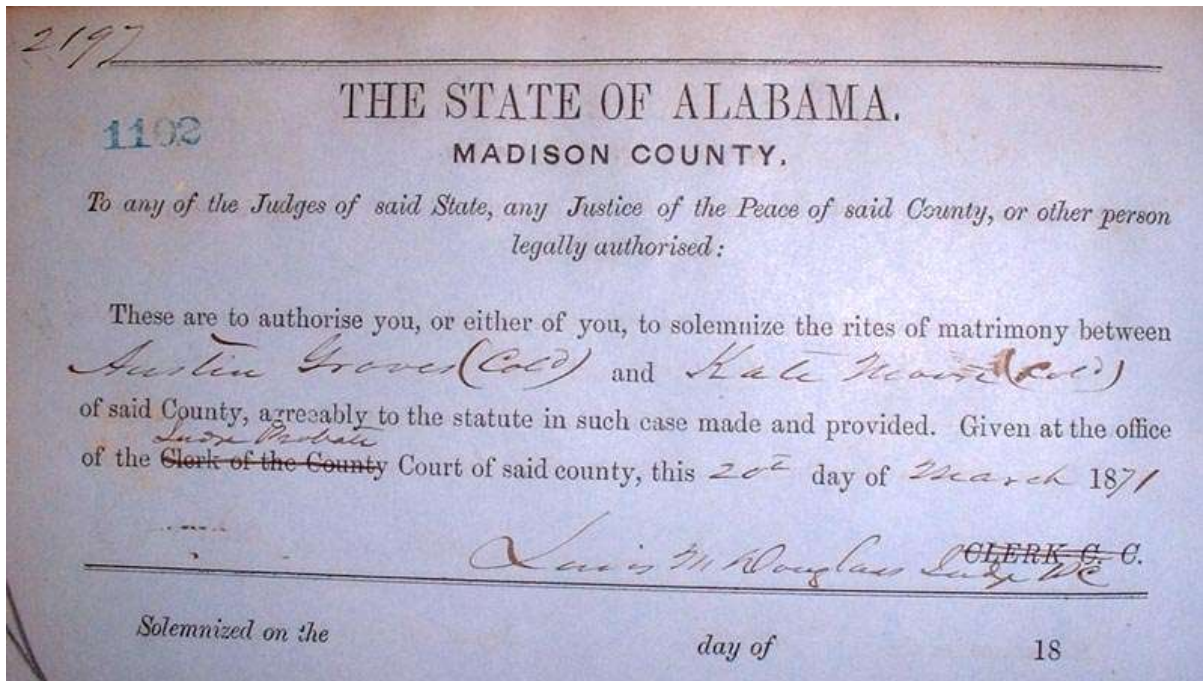 2197
THE STATE OF ALABAMA.
1102
MADISON COUNTY.
To any of the Judges of said State, any Justice of the Peace of said County, or other person
legally authorised:
These are to authorise you, or either of you, to solemnize the rites of matrimony between
Austin Groves (Cold) and Kate Moore (Cold)
of said County, agreeably to the statute in such case made and provided. Given at the office
Judge Probate
of the Clerk of the County Court of said county, this 20th day of March 1871
CLERK C. C.
Lewis M Douglass Judge PC
Solemnized on the day of 18